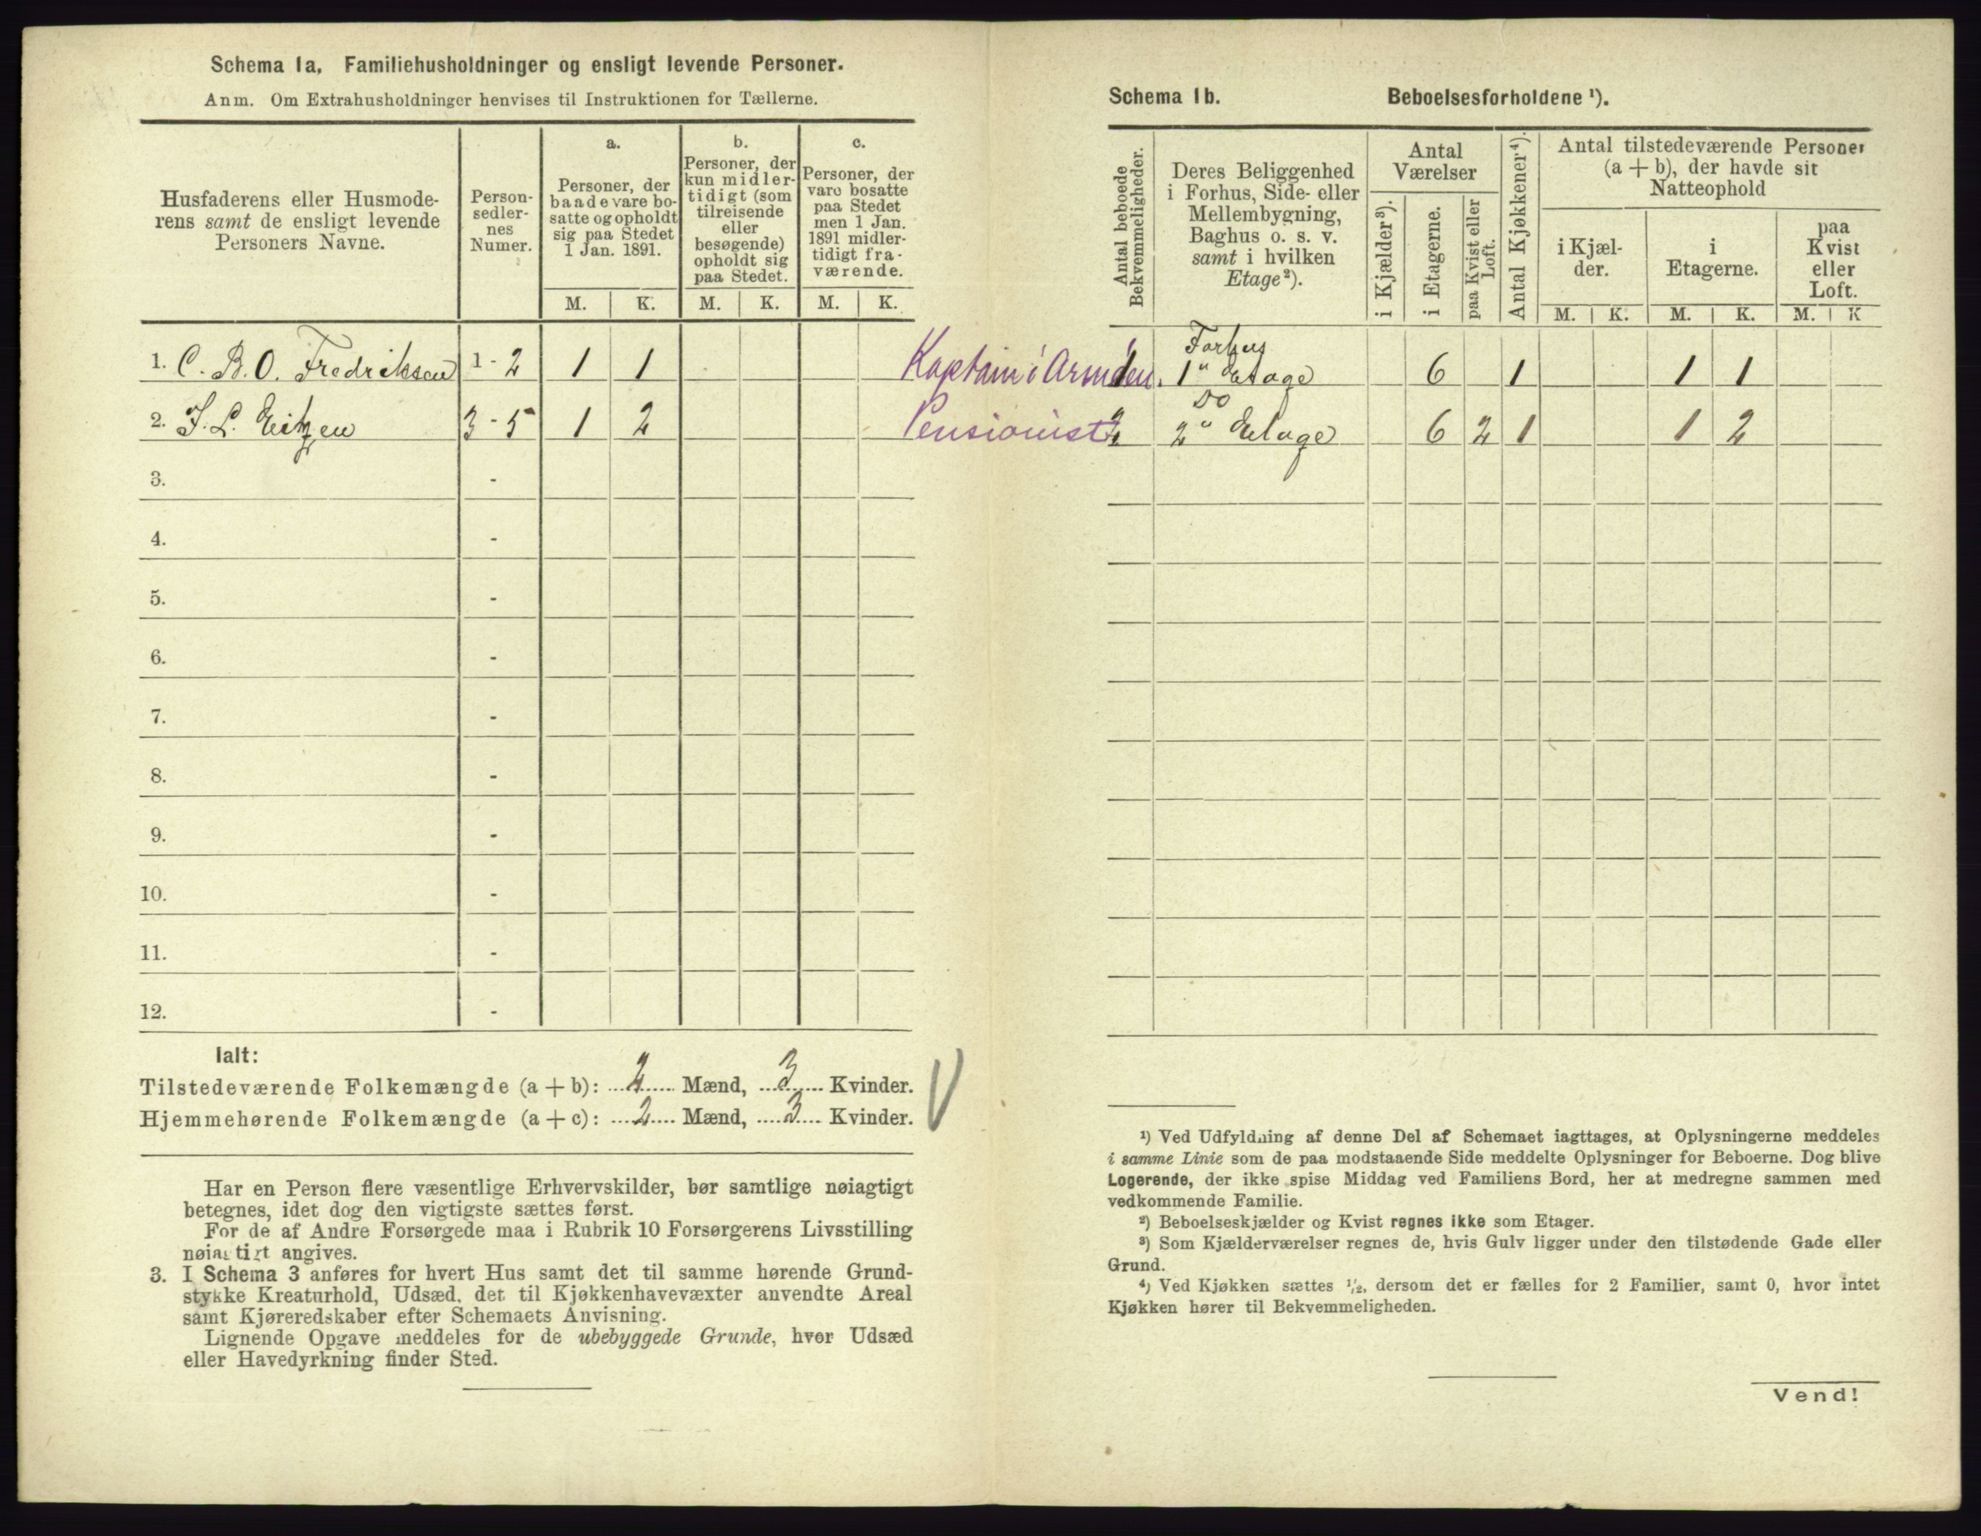 Schema 1a. Familiehusholdninger og ensligt levende Personer.
Anm. Om Extrahusholdninger henvises til Instruktionen for Tællerne.
Husfaderens eller Husmode-
rens samt de ensligt levende
Personers Navne.
Person-
sedler-
nes
Numer.
a.
Personer, der
baade vare bo-
satte og opholdt
sig paa Stedet
1 Jan. 1891.
b.
Personer, der
kun midler-
tidigt (som
tilreisende
eller
besøgende)
opholdt sig
paa Stedet.
c.
Personer, der
vare bosatte
paa Stedet
men 1 Jan.
1891 midler-
tidigt fra-
værende.
M. K. M. K. M. K.
1. C. B. O. Fredriksen 1 - 2 1 1 Kaptain i Arméen.
2. J. L. Eitzen 3 - 5 1 2 Pensionist
3. -
4. -
5. -
6. -
7. -
8. -
9. -
10. -
11. -
12. -
Ialt:
Tilstedeværende Folkemængde (a + b): 2 Mænd, 3 Kvinder.
Hjemmehørende Folkemængde (a + c): 2 Mænd, 3 Kvinder.
Har en Person flere væsentlige Erhvervskilder, bør samtlige nøiagtigt
betegnes, idet dog den vigtigste sættes først.
For de af Andre Forsørgede maa i Rubrik 10 Forsørgerens Livsstilling
nøiagtigt angives.
3. I Schema 3 anføres for hvert Hus samt det til samme hørende Grund-
stykke Kreaturhold, Udsæd, det til Kjøkkenhavevæxter anvendte Areal
samt Kjøreredskaber efter Schemaets Anvisning.
Lignende Opgave meddeles for de ubebyggede Grunde, hvor Udsæd
eller Havedyrkning finder Sted.
Schema 1b. Beboelsesforholdene ¹).
Antal beboede
Bekvemmeligheder.
Deres Beliggenhed
i Forhus, Side- eller
Mellembygning,
Baghus o. s. v.
samt i hvilken
Etage²).
Antal
Værelser
i Kjælder³).
i Etagerne.
paa Kvist eller
Loft.
Antal Kjøkkener⁴).
Antal tilstedeværende Personer
(a + b), der havde sit
Natteophold
i Kjæl-
der.
i
Etagerne.
paa
Kvist
eller
Loft.
M. K. M. K. M. K
Forhus
1 1" Etage 6 1 1 1
Do
2 2" Etage 6 2 1 1 2
¹) Ved Udfyldning af denne Del af Schemaet iagttages, at Oplysningerne meddeles
i samme Linie som de paa modstaaende Side meddelte Oplysninger for Beboerne. Dog blive
Logerende, der ikke spise Middag ved Familiens Bord, her at medregne sammen med
vedkommende Familie.
²) Beboelseskjælder og Kvist regnes ikke som Etager.
³) Som Kjælderværelser regnes de, hvis Gulv ligger under den tilstødende Gade eller
Grund.
⁴) Ved Kjøkken sættes ½, dersom det er fælles for 2 Familier, samt 0, hvor intet
Kjøkken hører til Bekvemmeligheden.
Vend!